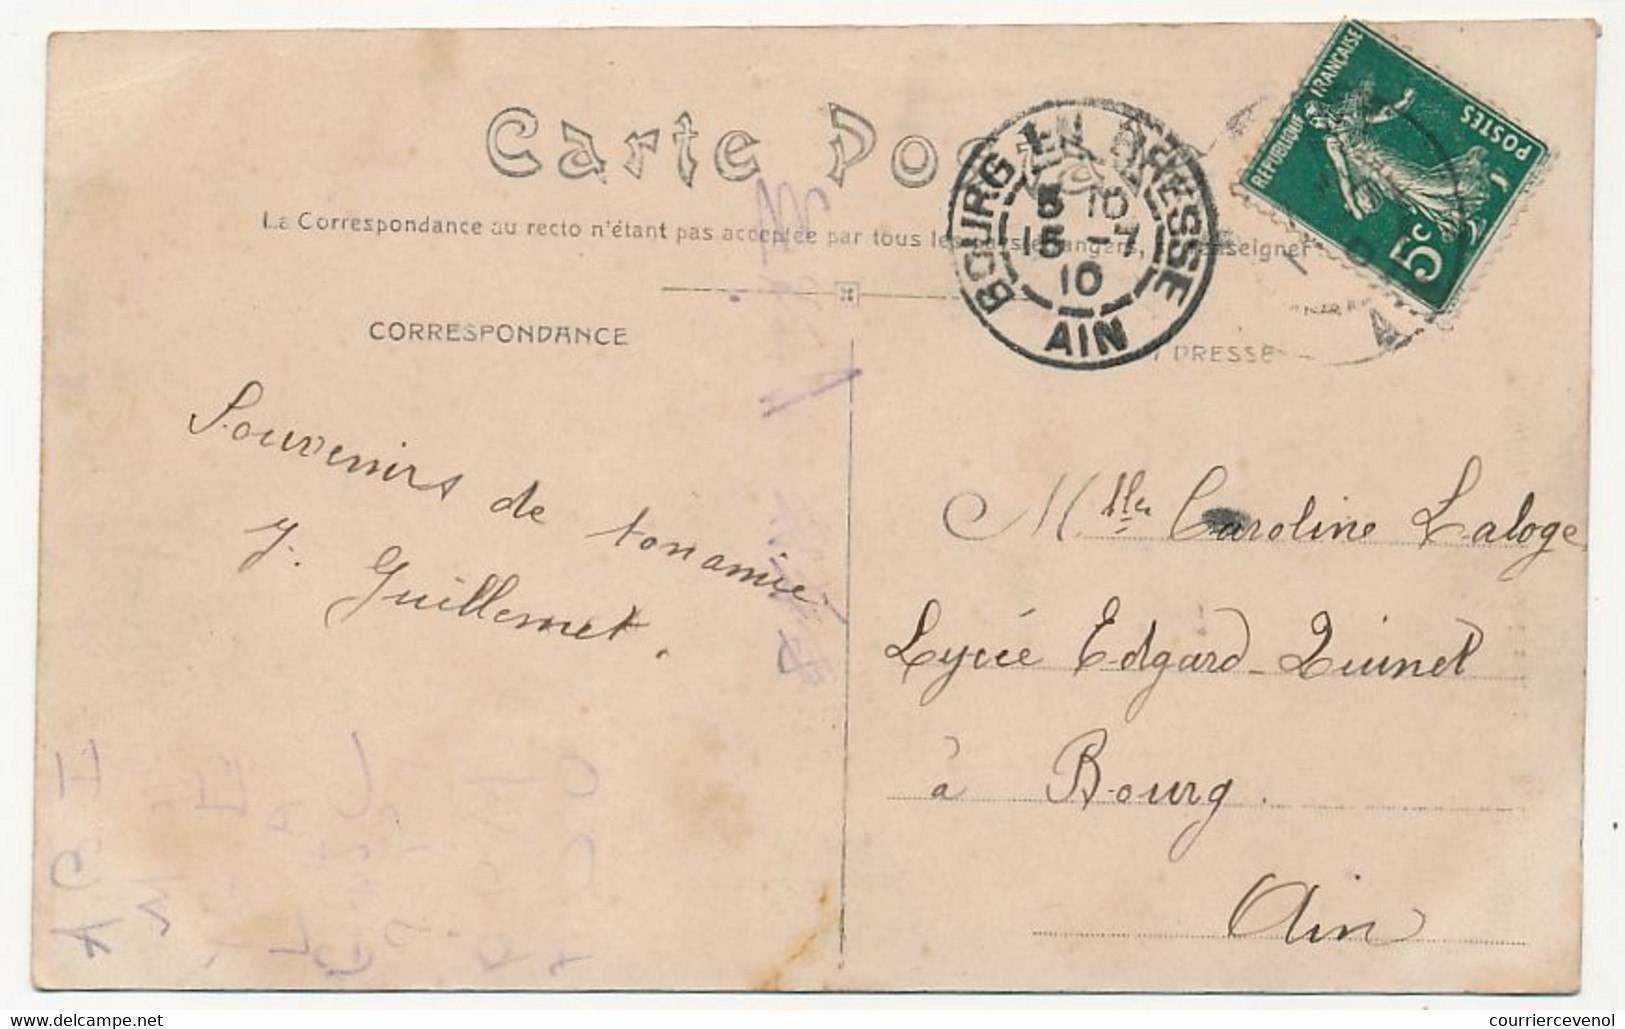 Carte Pos
La Correspondance au recto n'étant pas acceptée par tous les pays étrangers, renseigner
CORRESPONDANCE
ADRESSE
BOURG EN BRESSE
5 10
15 -7
10
AIN
RÉPUBLIQUE FRANÇAISE
POSTES
5c
Souvenirs de ton amie
Y. Guillemet.
Mlle Caroline Laloge
Lycée Edgard-Quinet
à Bourg.
Ain
Mercury-Delcampe.net
courriercevenol